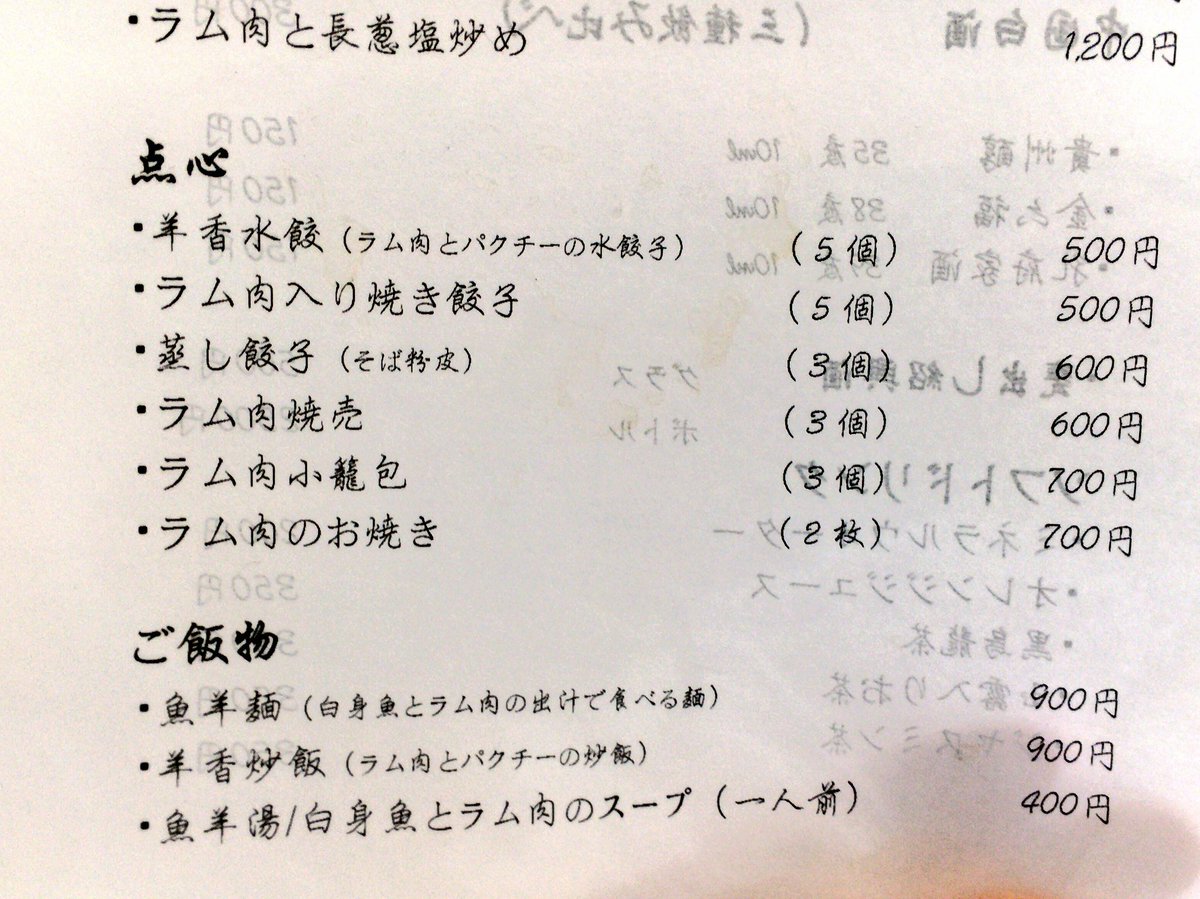 ・ラム肉と長葱塩炒め 1,200円
点心
・羊香水餃(ラム肉とパクチーの水餃子) (5個) 500円
・ラム肉入り焼き餃子 (5個) 500円
・蒸し餃子(そば粉皮) (3個) 600円
・ラム肉焼売 (3個) 600円
・ラム肉小籠包 (3個) 700円
・ラム肉のお焼き (2枚) 700円
ご飯物
・魚羊麺(白身魚とラム肉の出汁で食べる麺) 900円
・羊香炒飯(ラム肉とパクチーの炒飯) 900円
・魚羊湯/白身魚とラム肉のスープ(一人前) 400円